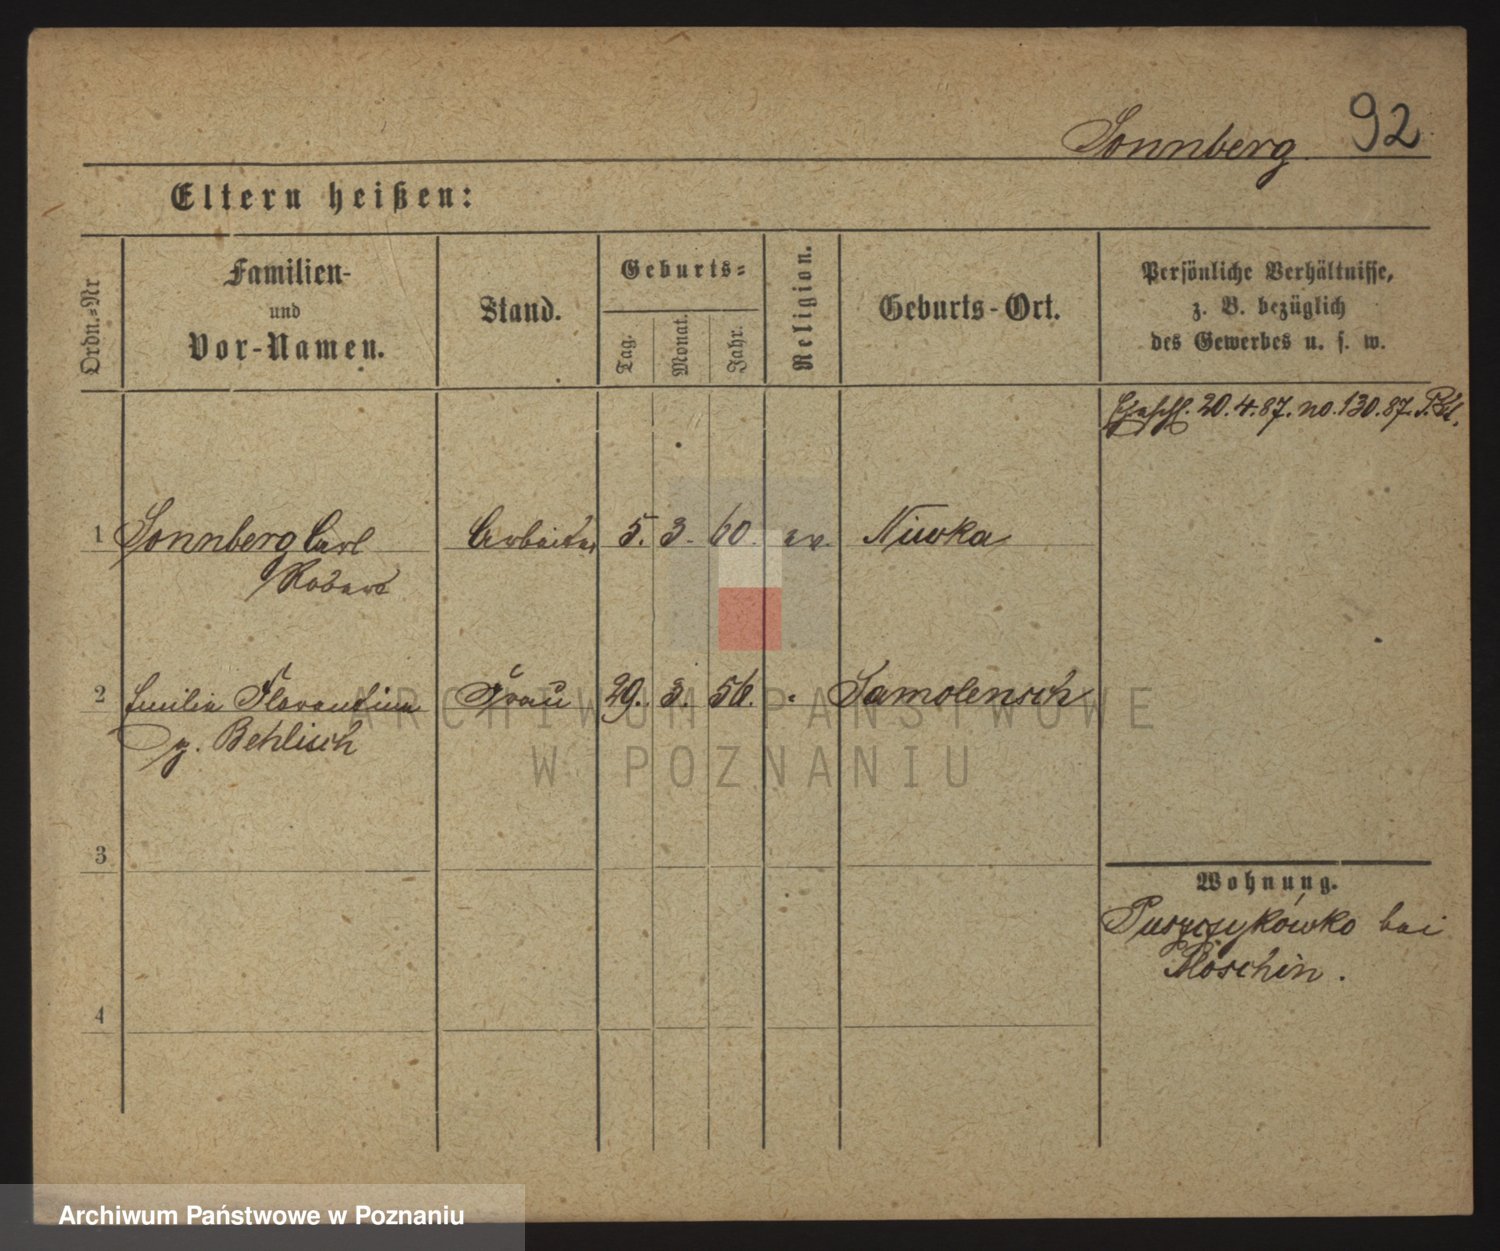 Sonnberg. 92
Eltern heißen:
Ordn.-Nr
Familien-
und
Vor-Namen.
Stand.
Geburts-
Tag.
Monat.
Jahr.
Religion.
Geburts-Ort.
Persönliche Verhältnisse,
z. B. bezüglich
des Gewerbes u. s. w.
20.4.87. no. 130.87.
1 Sonnberg Carl Arbeiter 5. 3. 60. ev. Niwka
Robert
2 Emilie Florentine Frau 29. 3. 56. Samolensch
g. Behlisch
3
Wohnung.
Puszczykówko bei
Moschin.
4
ARCHIWUM PAŃSTWOWE
W POZNANIU
Archiwum Państwowe w Poznaniu